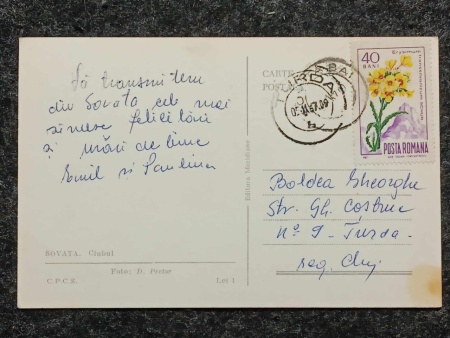 Vă transmitem
din Sovata cele mai
sincere felicitări
și urări de bine
Emil și Paulina
SOVATA. Clubul
Foto: D. Preter
C.P.C.S.
Lei 1
Editura Meridiane
CARTE
POȘTALĂ
TURDA
40
BANI
Erysimum
POSTA ROMANA
Boldea Gheorghe
Str. Gh. Coșbuc
Nº 9 - Turda -
reg. Cluj